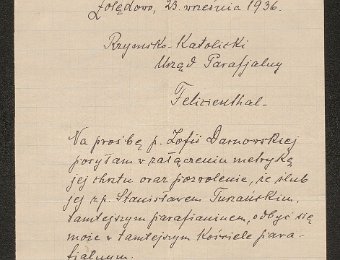 Żołędowo, 23. września 1936.
Rzymsko-Katolicki
Urząd Parafjalny
Felicienthal.
Na prośbę p. Zofii Darnowskiej
posyłam w załączeniu metrykę
jej chrztu oraz pozwolenie, że ślub
jej z p. Stanisławem Turańskim,
tamtejszym parafianinem, odbyć się
może w tamtejszym Kościele para-
fjalnym.